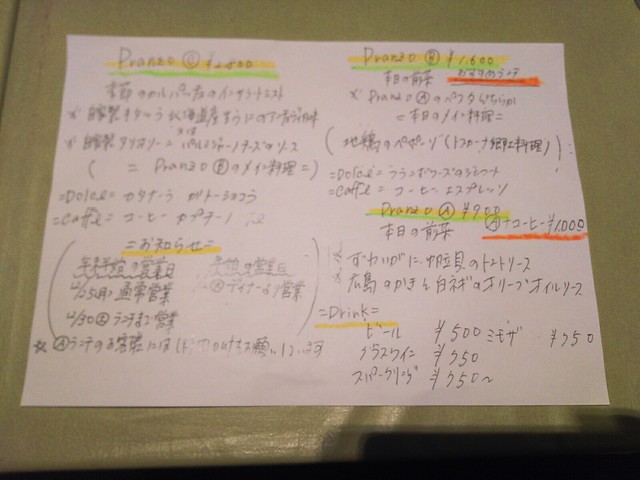 Pranzo Ⓒ ¥2,800
季節の カルパッチョの インサラータ
※ 自家製 北海道産 うに
※ 自家製 タリオリーニ パルミジャーノチーズのソース
( = Pranzo Ⓑ のメイン料理 = )
=Dolce= カタラーナ ガトーショコラ
=Caffe= コーヒー カプチーノ
=お知らせ=
年末年始の営業日
12/25(月) 通常営業
ディナーより営業
12/30 ランチまで営業
※ Ⓐランチのお客様には お願いしています
Pranzo Ⓑ ¥1,600
本日の前菜 おすすめランチ
※ Pranzo Ⓐ のパスタどちらか
=本日のメイン料理=
( 地鶏のペポーゾ (トスカーナ郷土料理) )
=Dolce= フランボワーズのジェラート
=Caffe= コーヒー エスプレッソ
Pranzo Ⓐ ¥900
本日の前菜 Ⓐ+コーヒー ¥1,000
※ ずわいがに、帆立貝のトマトソース
※ 広島のかきと白ネギのオリーブオイルソース
=Drink=
ビール ¥500 ミモザ ¥750
グラスワイン ¥750
スパークリング ¥750~